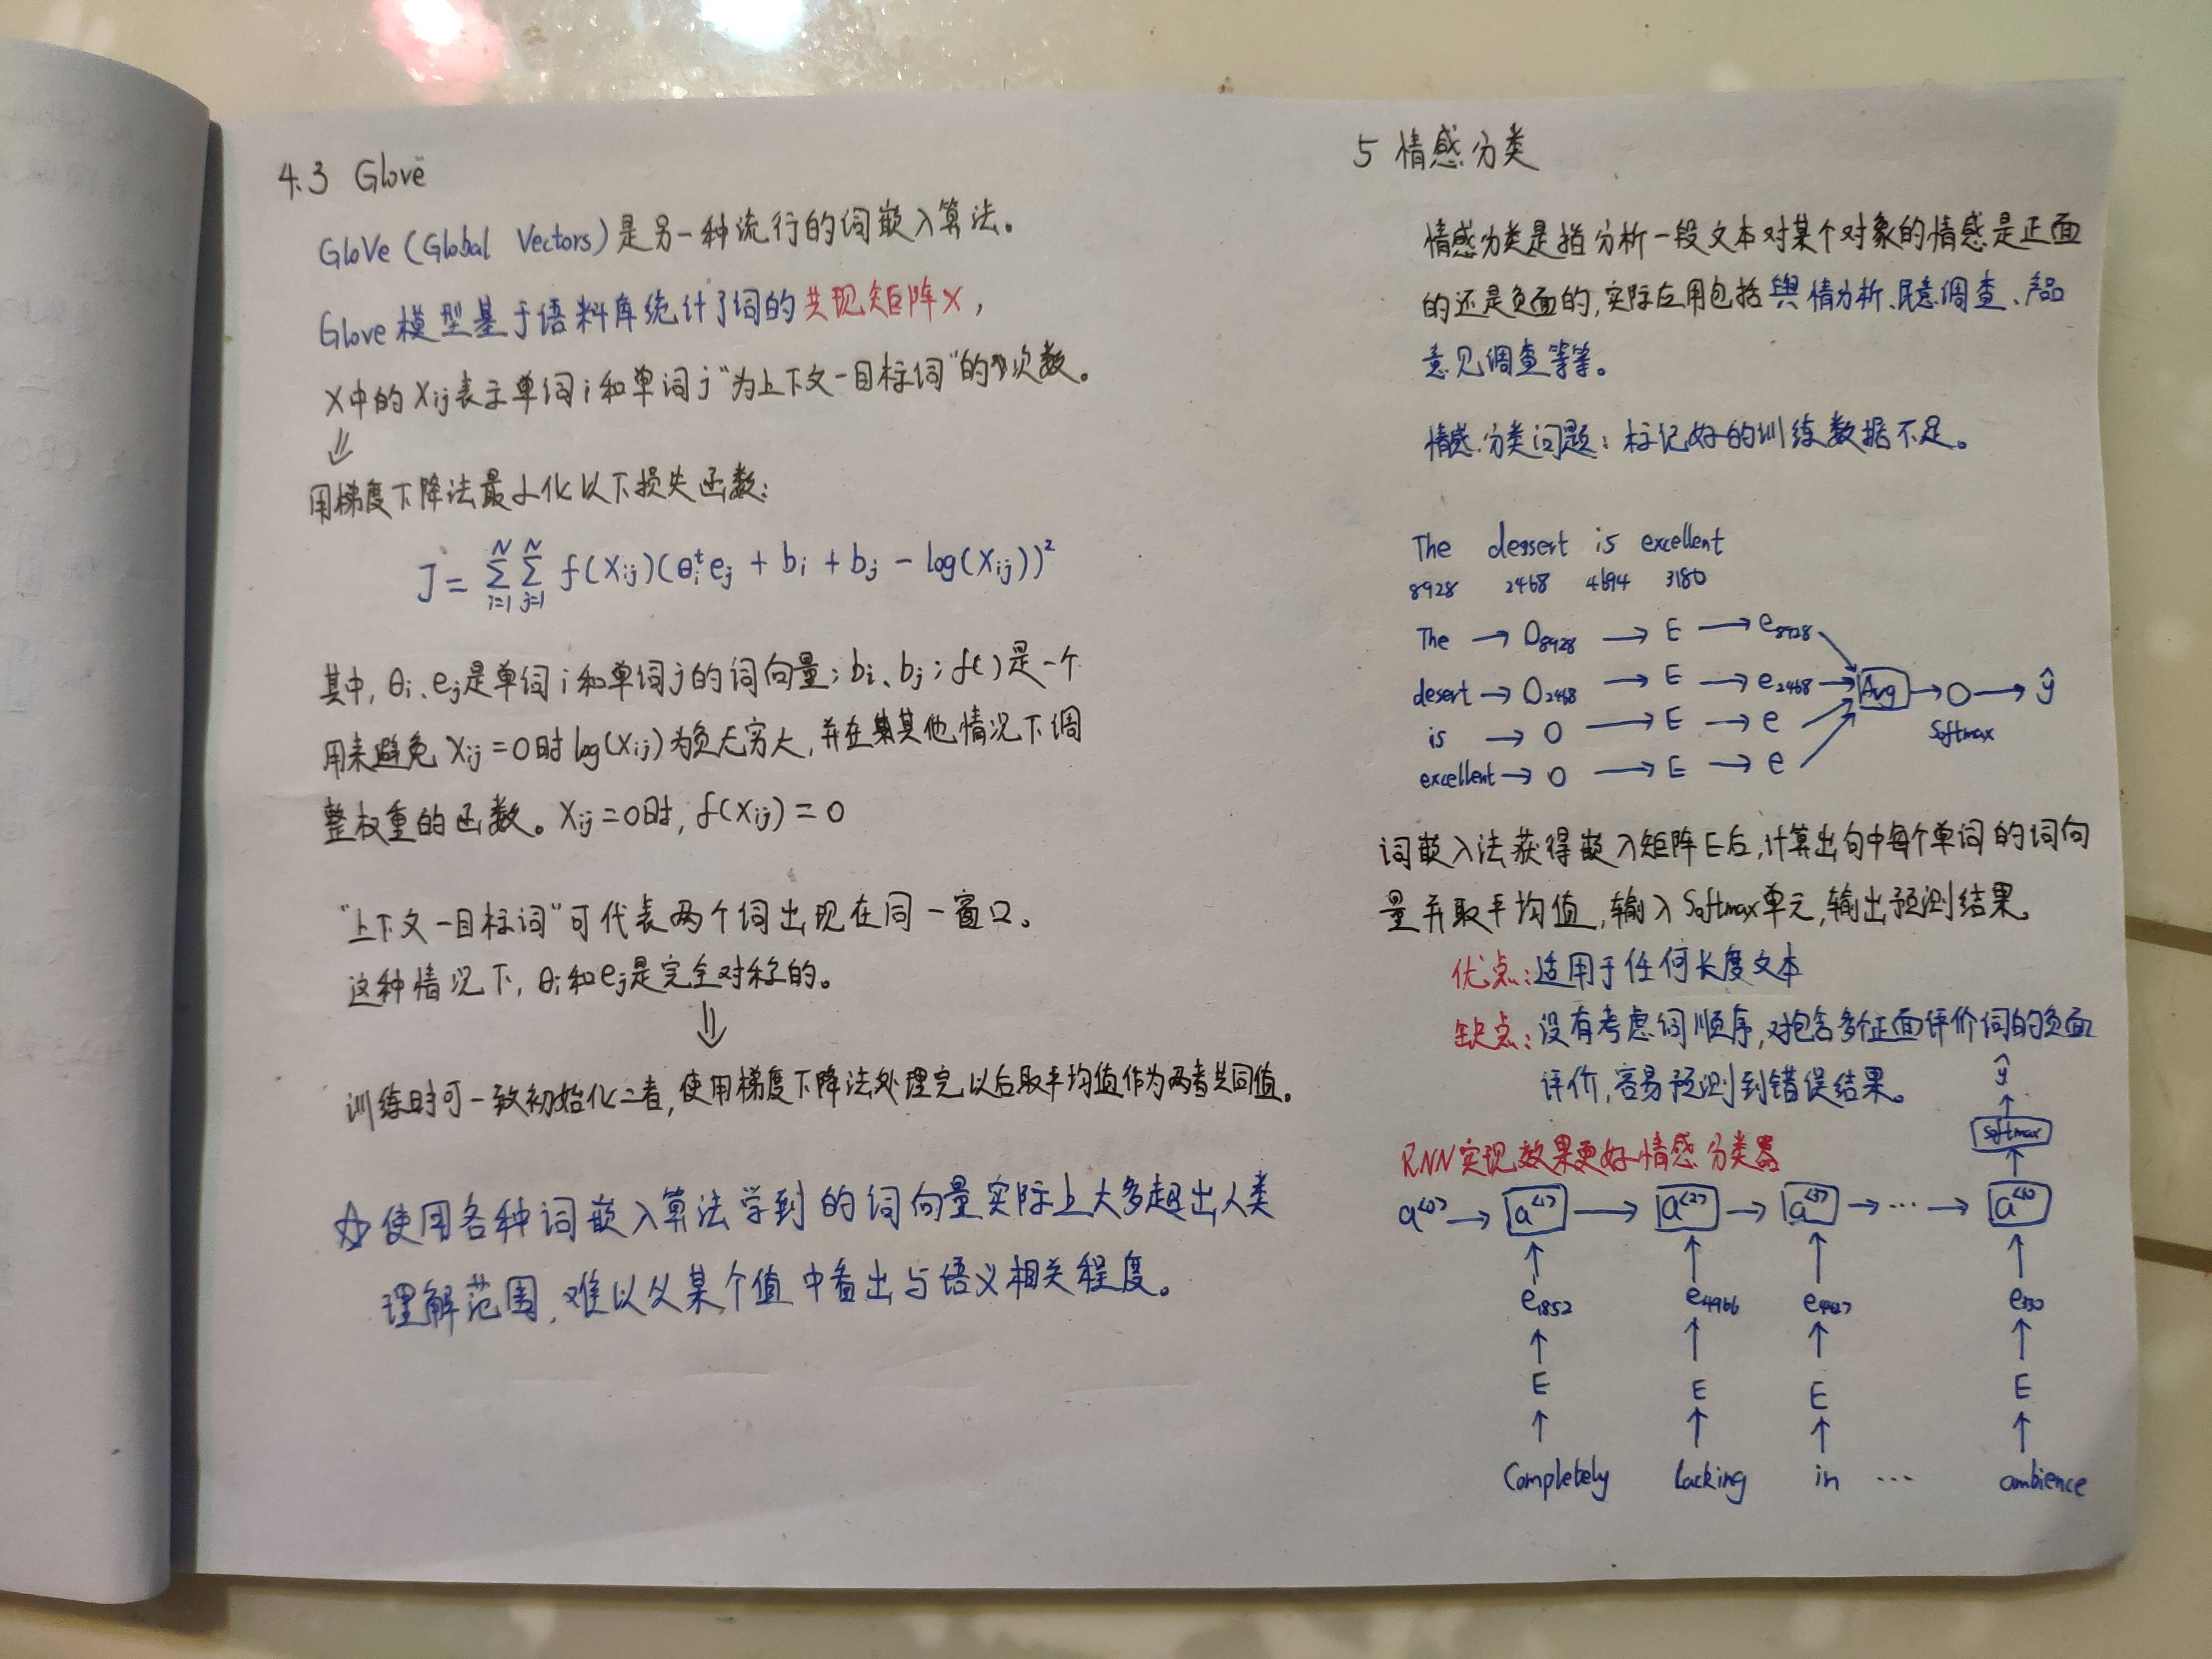 4.3 Glove
GloVe (Global Vectors) 是另一种流行的词嵌入算法。
Glove 模型基于语料库统计了词的共现矩阵X,
X中的 Xij表示单词 i 和单词 j "为上下文-目标词"的次数。
⇓
用梯度下降法最小化以下损失函数:
J = ∑_{i=1}^{N} ∑_{j=1}^{N} f(Xij)(θ_i^t e_j + b_i + b_j - log(Xij))²
其中, θi、ej是单词 i 和单词 j 的词向量; bi、bj; f( ) 是一个
用来避免 Xij = 0时 log(Xij) 为负无穷大, 并在其他情况下调
整权重的函数。Xij = 0时, f(Xij) = 0
"上下文-目标词"可代表两个词出现在同一窗口。
这种情况下, θi和ej是完全对称的。
⇓
训练时可一致初始化二者, 使用梯度下降法处理完以后取平均值作为两者共同值。
☆ 使用各种词嵌入算法学到的词向量实际上大多超出人类
理解范围, 难以从某个值中看出与语义相关程度。
5 情感分类
情感分类是指分析一段文本对某个对象的情感是正面
的还是负面的, 实际应用包括舆情分析、民意调查、产品
意见调查等等。
情感分类问题: 标记好的训练数据不足。
The dessert is excellent
8928 2468 4694 3180
The → O8928 → E → e8928
desert → O2468 → E → e2468 → Avg → O → ŷ
is → O → E → e Softmax
excellent → O → E → e
词嵌入法获得嵌入矩阵E后, 计算出句中每个单词的词向
量并取平均值, 输入 Softmax 单元, 输出预测结果。
优点: 适用于任何长度文本
缺点: 没有考虑词顺序, 对包含多个正面评价词的负面
评价, 容易预测到错误结果。
ŷ
↑
Softmax
RNN实现效果更好情感分类器
↑
a<0> → a<1> → a<2> → a<3> → ... → a
↑ ↑ ↑ ↑
e1852 e4966 e4427 e330
↑ ↑ ↑ ↑
E E E E
↑ ↑ ↑ ↑
Completely lacking in ... ambience